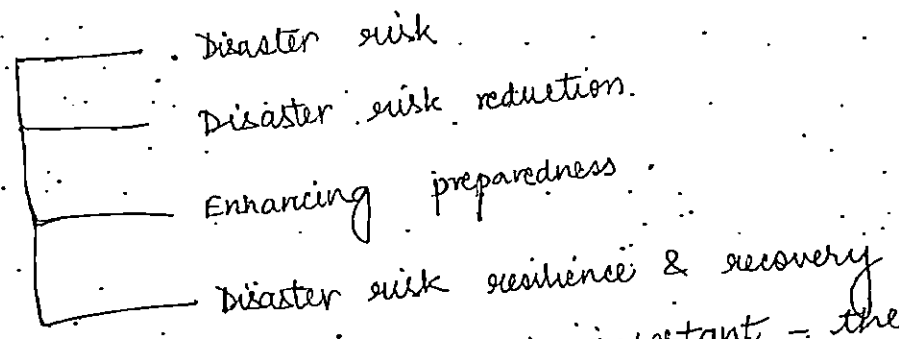 Disaster risk
Disaster risk reduction.
Enhancing preparedness.
Disaster risk resilience & recovery
- the